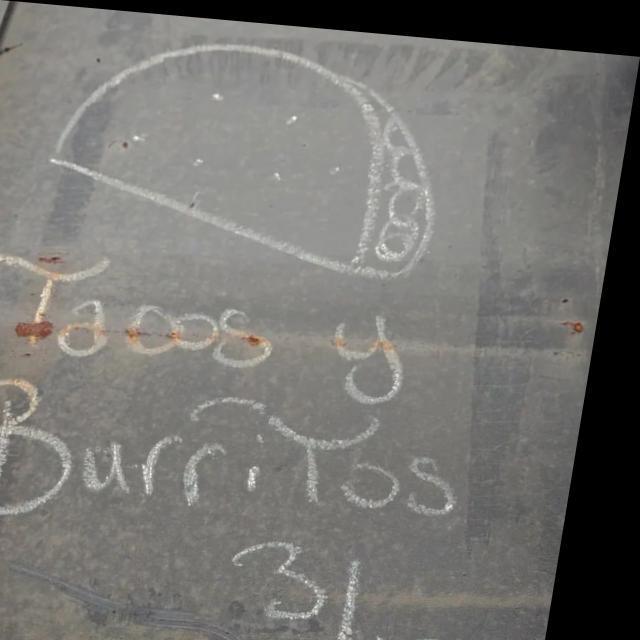 Tacos y
Burritos